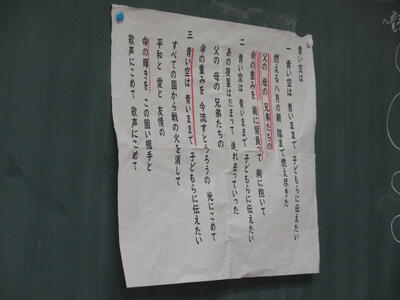 青い空は
一 青い空は 青いままで 子どもらに伝えたい
燃える八月の朝 影まで燃え尽きた
父の 母の 兄弟たちの
命の重みを 肩に背負って 胸に抱いて
二 青い空は 青いままで 子どもらに伝えたい
あの夜星はだまって 連れ去っていった
父の 母の 兄弟たちの
命の重みを 今流すとうろうの 光にこめて
三 青い空は 青いままで 子どもらに伝えたい
すべての国から戦の火を消して
平和と 愛と 友情の
命の輝きを この固い握手と
歌声にこめて 歌声にこめて